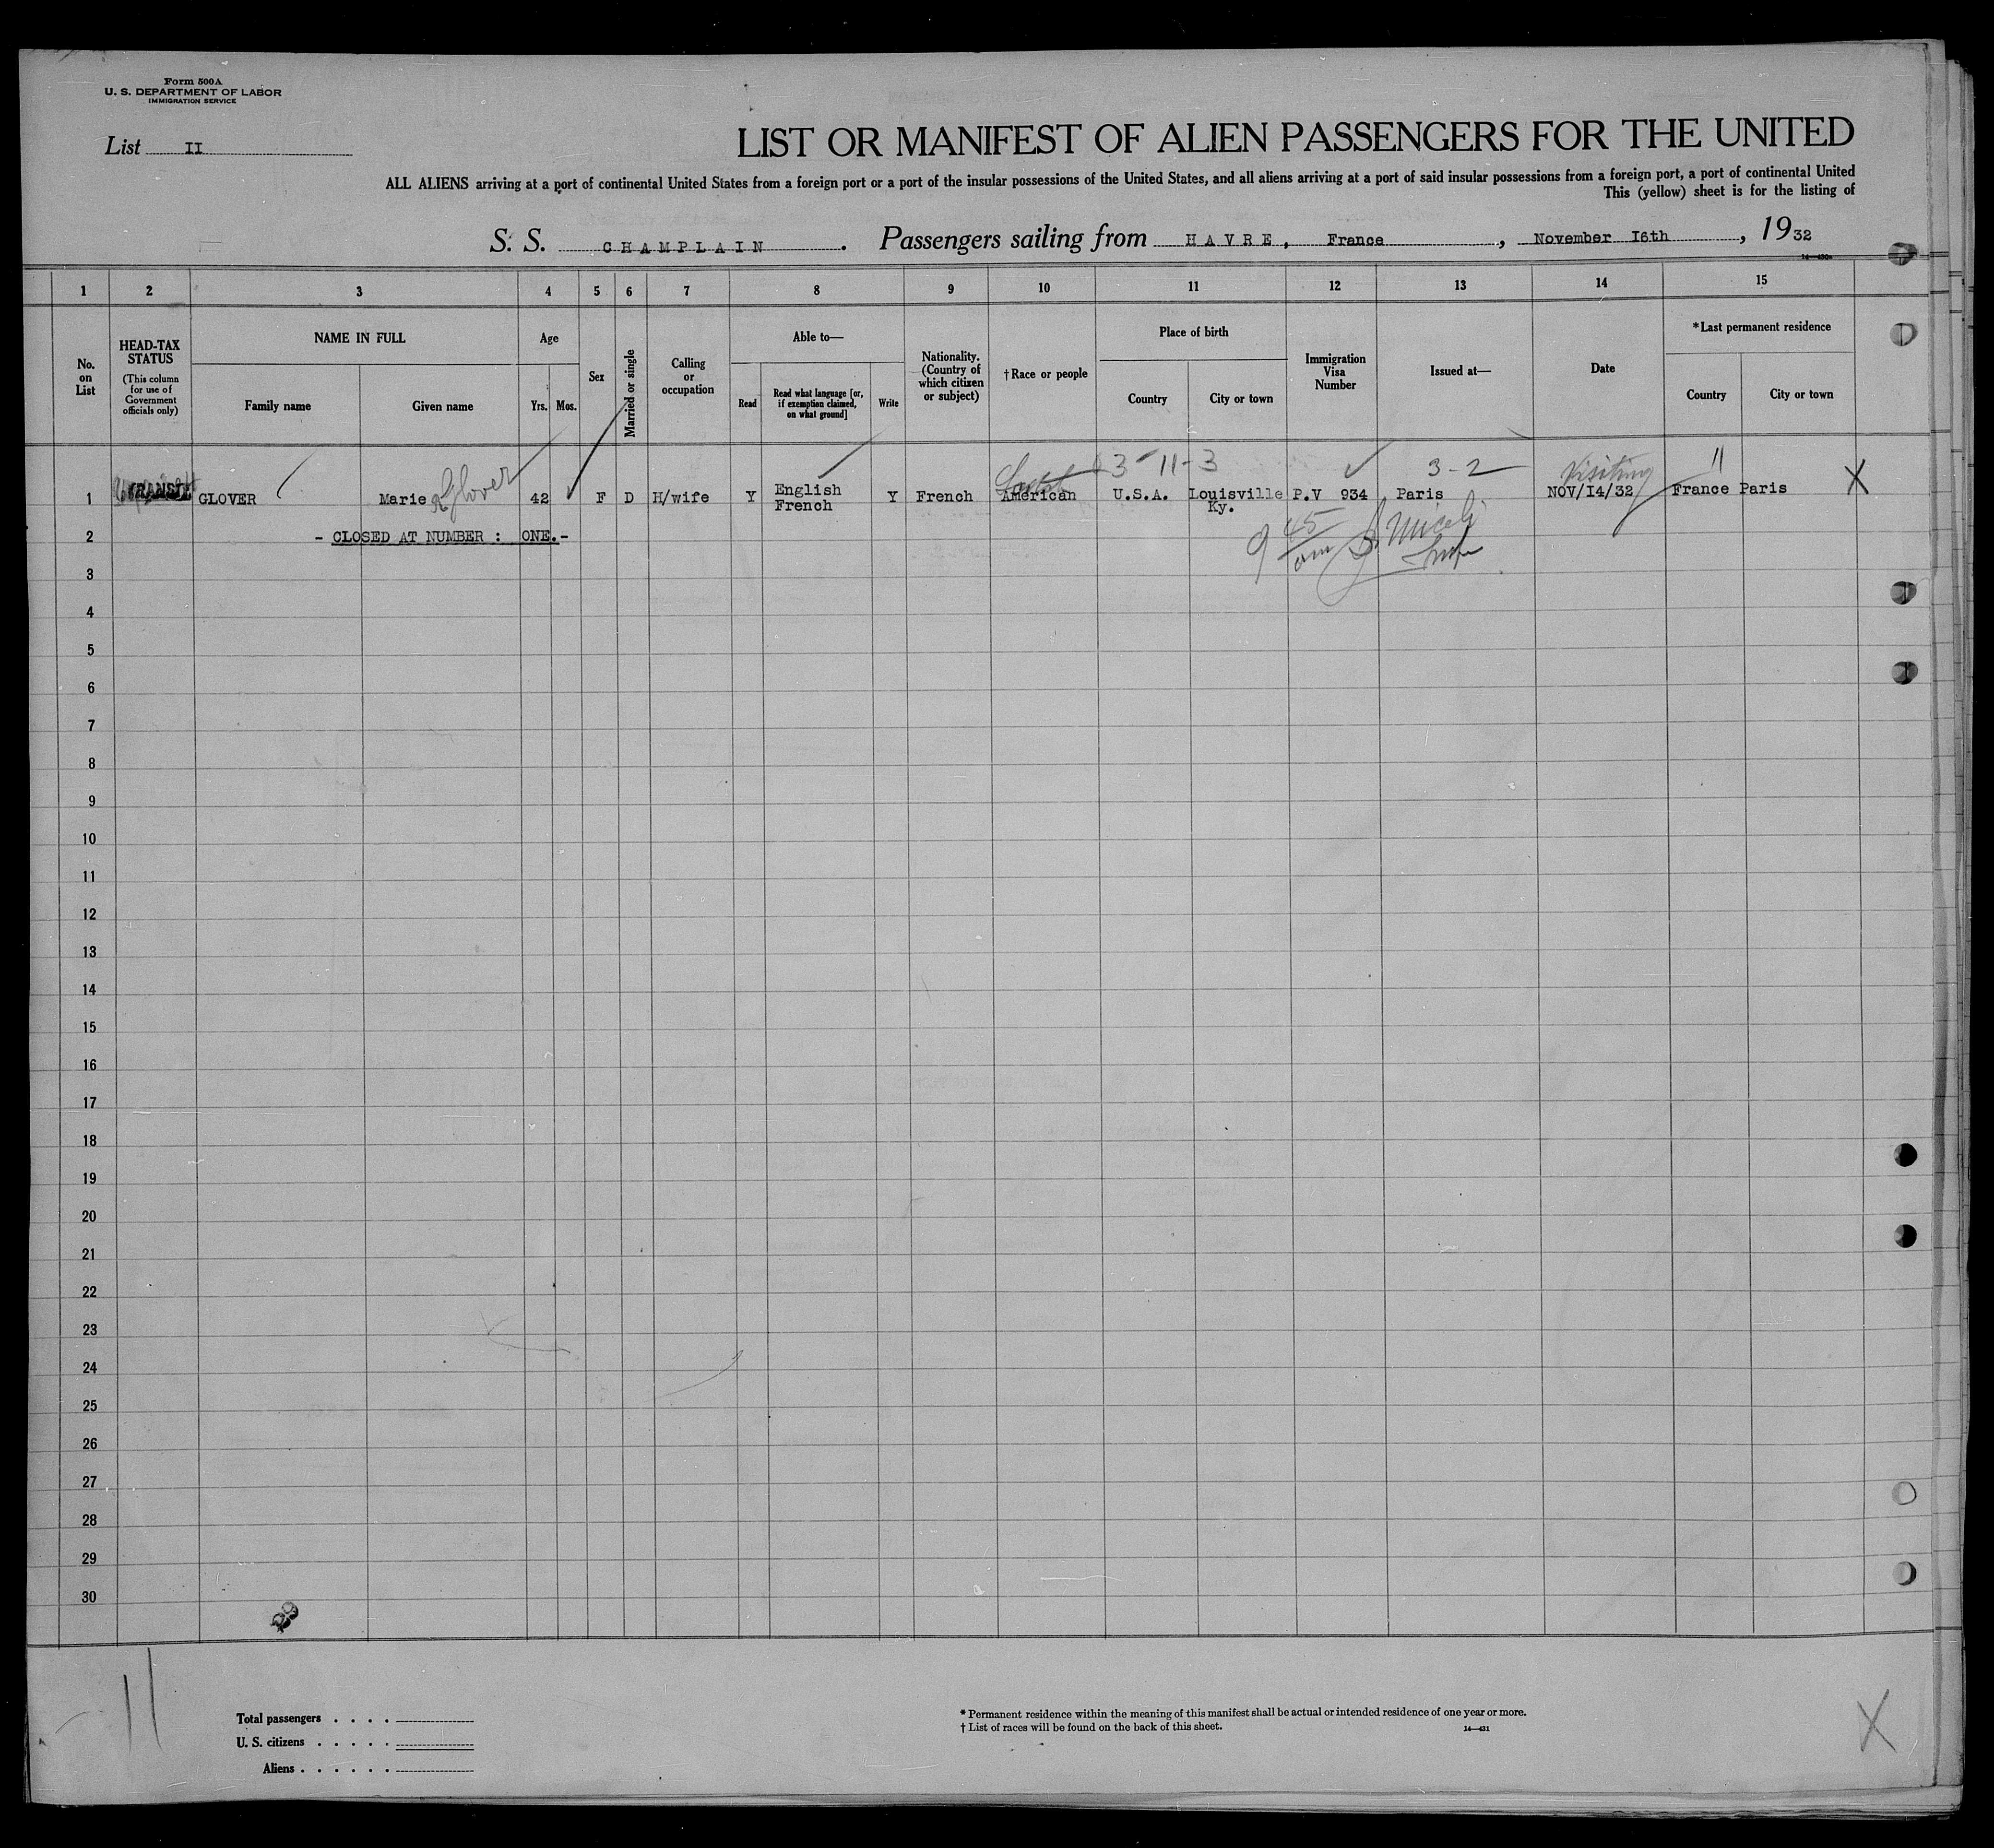 Form 500A
U. S. DEPARTMENT OF LABOR
IMMIGRATION SERVICE
List II
LIST OR MANIFEST OF ALIEN PASSENGERS FOR THE UNITED
ALL ALIENS arriving at a port of continental United States from a foreign port or a port of the insular possessions of the United States, and all aliens arriving at a port of said insular possessions from a foreign port, a port of continental United
This (yellow) sheet is for the listing of
S. S. CHAMPLAIN . Passengers sailing from HAVRE, France , November I6th , 1932
1 2 3 4 5 6 7 8 9 10 11 12 13 14 15
No. on List
HEAD-TAX STATUS
(This column for use of Government officials only)
NAME IN FULL
Family name
Given name
Age
Yrs.
Mos.
Sex
Married or single
Calling or occupation
Able to—
Read
Read what language [or, if exemption claimed, on what ground]
Write
Nationality. (Country of which citizen or subject)
†Race or people
Place of birth
Country
City or town
Immigration Visa Number
Issued at—
Date
*Last permanent residence
Country
City or town
3-11-3
3-2
Visiting
11
X
1 TRANSIT GLOVER Marie Glover 42 F D H/wife Y English French Y French American U.S.A. Louisville Ky. P.V 934 Paris NOV/I4/32 France Paris
9 45 am
2 - CLOSED AT NUMBER : ONE.-
3
4
5
6
7
8
9
10
11
12
13
14
15
16
17
18
19
20
21
22
23
24
25
26
27
28
29
30
11
Total passengers . . . .
U. S. citizens . . . . .
Aliens . . . . . .
* Permanent residence within the meaning of this manifest shall be actual or intended residence of one year or more.
† List of races will be found on the back of this sheet.
14—431
X